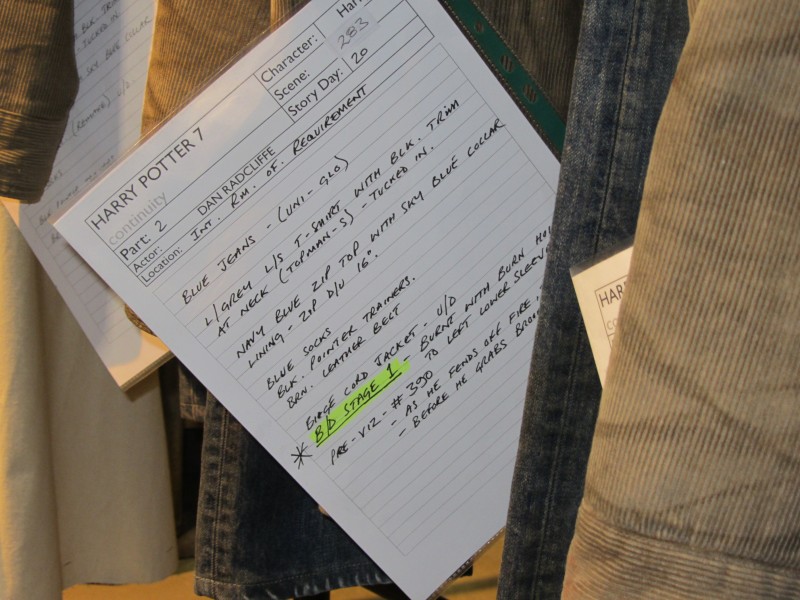 HARRY POTTER 7
continuity
Part: 2
Actor: DAN RADCLIFFE
Location: INT. RM. OF. REQUIREMENT
Character: Har
Scene: 283
Story Day: 20
BLUE JEANS - (UNI-GLO)
L/GREY L/S T-SHIRT WITH BLK. TRIM
AT NECK (TOPMAN-S) - TUCKED IN.
NAVY BLUE ZIP TOP WITH SKY BLUE COLLAR
LINING - ZIP D/U 16".
BLUE SOCKS
BLK. POINTER TRAINERS.
BRN. LEATHER BELT
BEIGE CORD JACKET - U/D
* B/D STAGE 1 - BURNT WITH BURN HO
TO LEFT LOWER SLEEV
PRE-VIZ - #390 - AS HE FENDS OFF FIRE,
- BEFORE HE GRABS BROO
HAR
co
SKY BLUE COLLAR